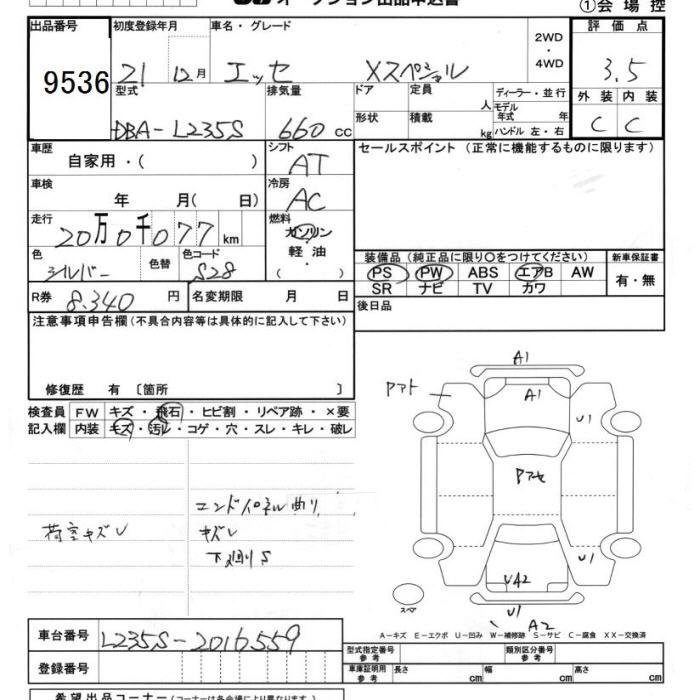 オークション出品申込書
①会場控
出品番号 初度登録年月 車名・グレード 2WD・4WD 評価点
9536 21 12月 エッセ Xスペシャル 3.5
型式 排気量 ドア 定員 人 ディーラー・並行 外装 内装
DBA-L235S 660cc 形状 積載 kg モデル年式 年 ハンドル 左・右 C C
車歴 シフト セールスポイント(正常に機能するものに限ります)
自家用・( ) AT
車検 冷房
年 月( 日) AC
走行 燃料
20万0千077km ガソリン
色 色替 色コード 軽油 装備品(純正品に限り○をつけてください) 新車保証書
シルバー S28 ( ) PS PW ABS エアB AW 有・無
R券 8.340円 名変期限 月 日 SR ナビ TV カワ
注意事項申告欄(不具合内容等は具体的に記入して下さい) 後日品
修復歴 有〔箇所 〕
検査員 FW キズ・飛石・ヒビ割・リペア跡・×要
記入欄 内装 キズ・汚レ・コゲ・穴・スレ・キレ・破レ
A1
Pアト A1
U1
Pアセ
エンドパネル曲り
荷室キズU キズU
下廻りS
U1
UA2
スペア U1 A2
A-キズ E-エクボ U-凹み W-補修跡 S-サビ C-腐食 XX-交換済
車台番号 L235S-2016559
型式指定番号参考 類別区分番号参考
登録番号 車庫証明用参考 長さ cm 幅 cm 高さ cm
希望出品コーナー(コーナーは各会場により異なります)